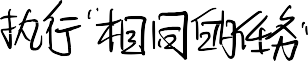 执行“相同的任务”